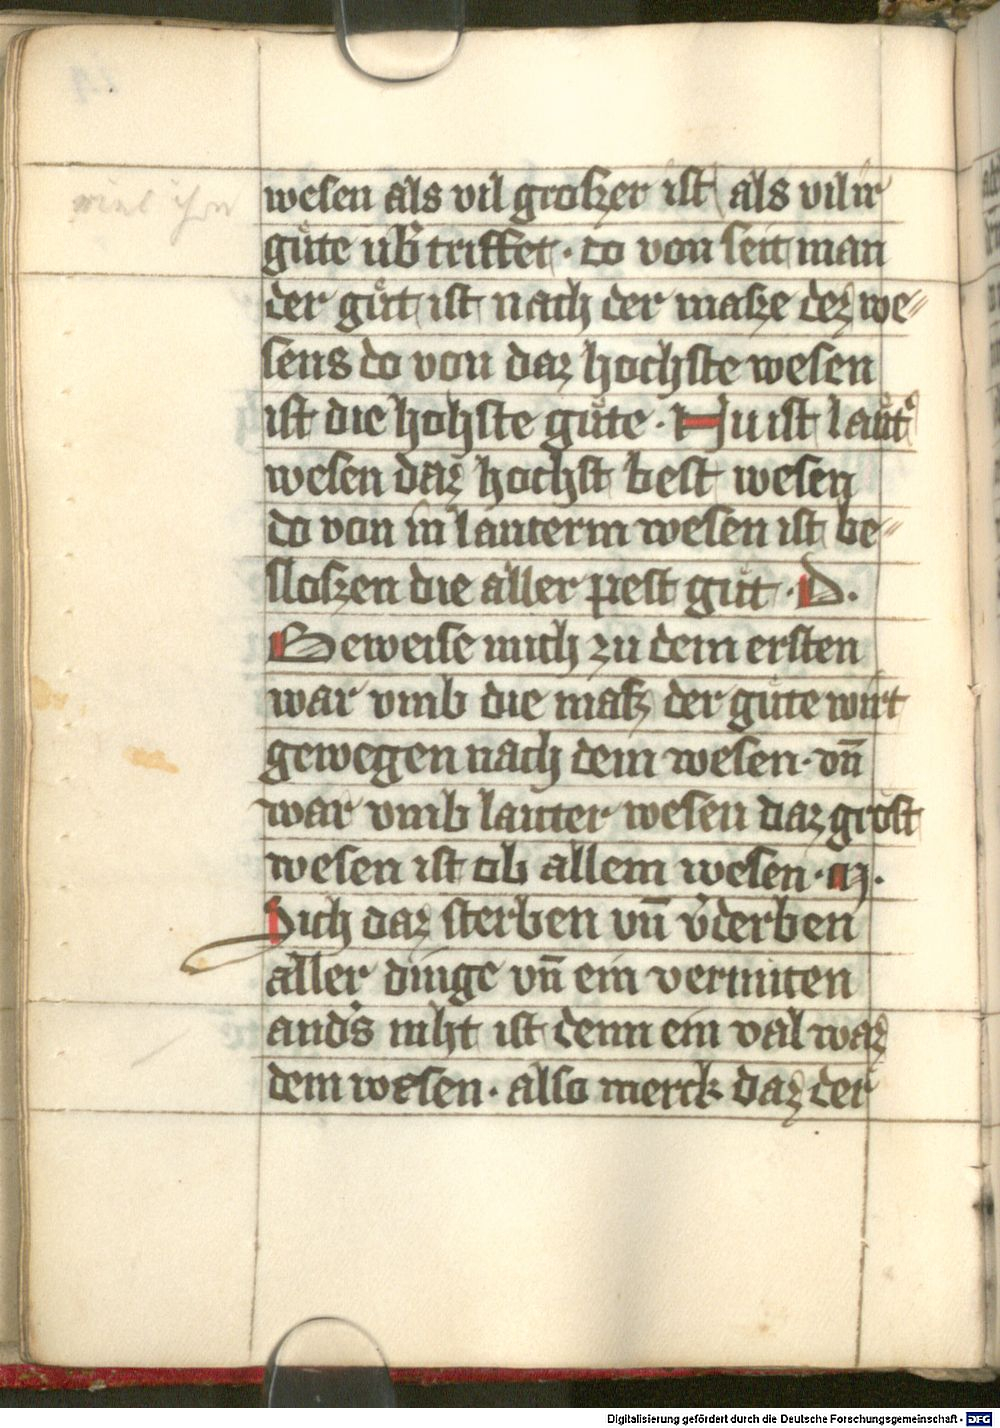 wesen als vil groszer ist als vil ir
guͤte ub᷑ triffet · do von seit man
der guͤt ist nach der masze dez we〃
sens do von daz hochste wesen
ist die hohste guͤte · Nu ist laut᷑
wesen daz hochst best wesen
do von in lauterm wesen ist be〃
sloszen die aller pest gut · D.
Beweise mich zu dem ersten
war vmb die masz der guͤte wirt
gewegen nach dem wesen · vn̄
war vmb lauter wesen daz groͤst
wesen ist ob allem wesen · M.
Sich daz sterben vn̄ v᷑derben
aller dinge vn̄ ein verniten
and᷑s niht ist denn ein val waz
dem wesen · also merck daz der
Digitalisierung gefördert durch die Deutsche Forschungsgemeinschaft - DFG